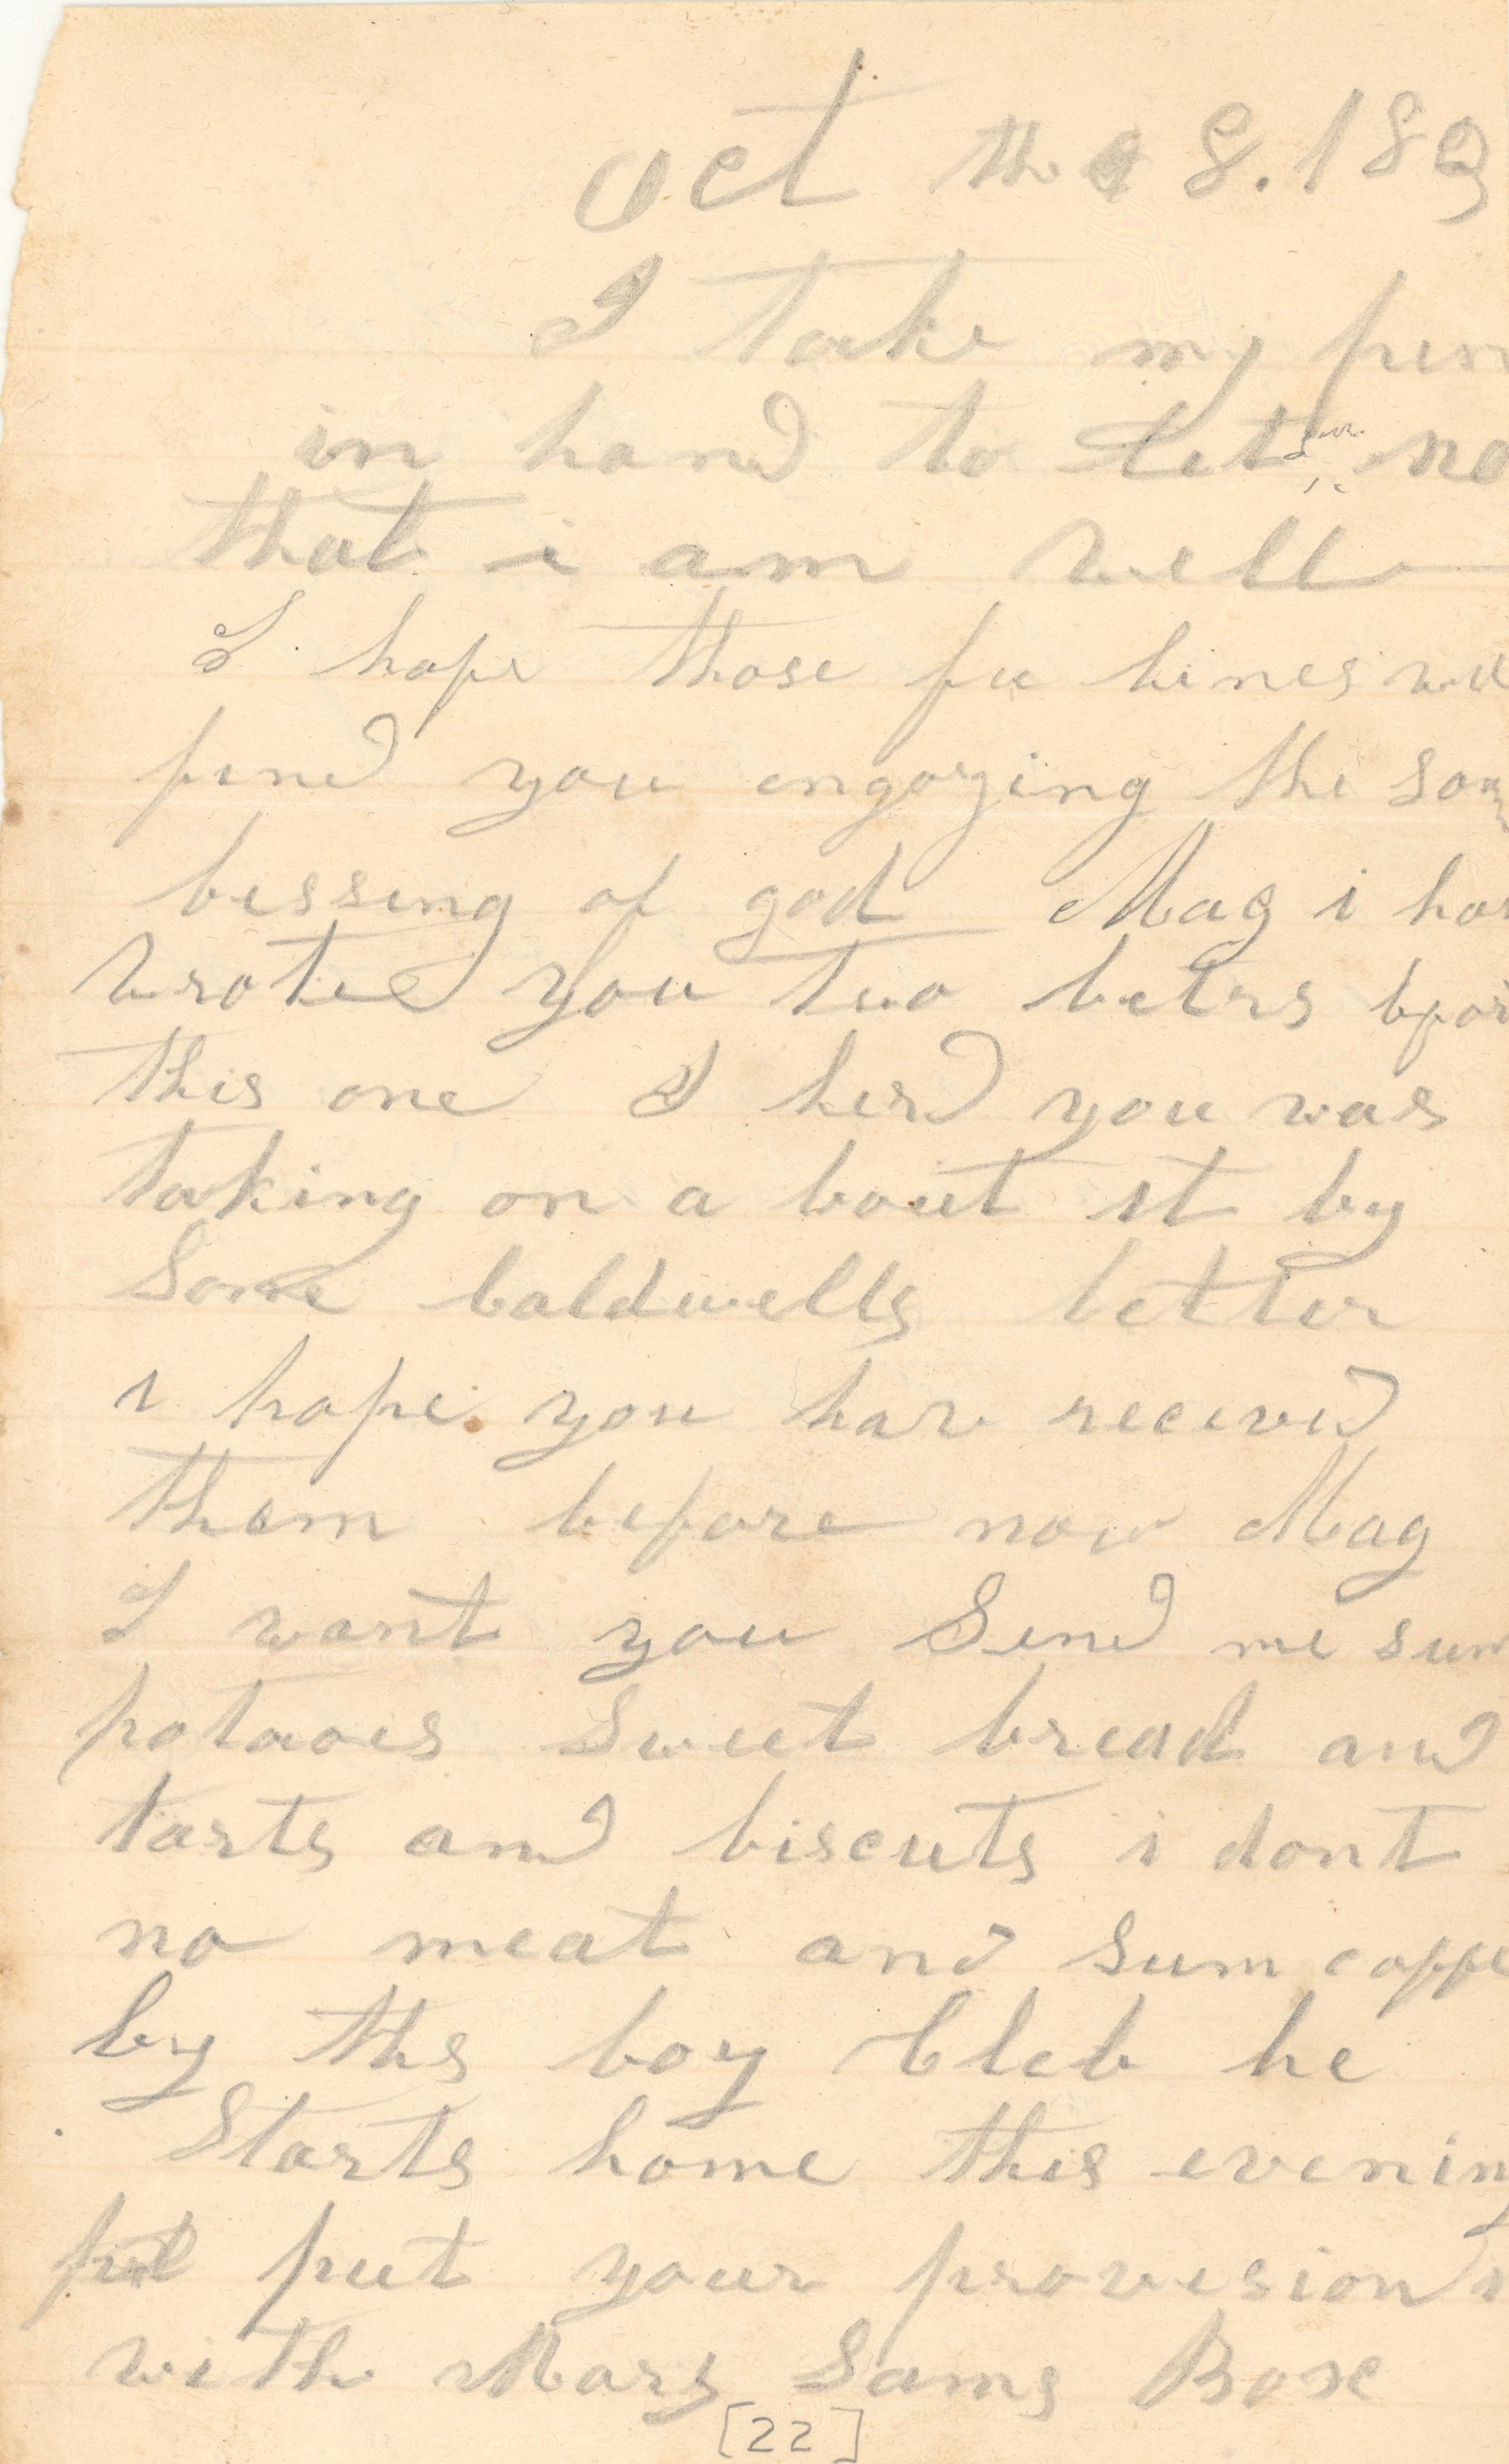 oct the 8. 189
I take my pen
in hand to Let no
that i am well
I hope those fu lines will
find you engoying the Sam
bessing of god Mag i hav
wroted you two letrs bfor
this one I herd you was
taking on a bout it by
Some baldwells letter
i hope you hav receved
them before now Mag
I want you Send me sum
potaoes Sweet bread and
tarts and biscuts i dont
no meat and Sum coffe
by ths boy Cleb he
Starts home this evening
put your provesion
with Mars Sams Boxe
[22]